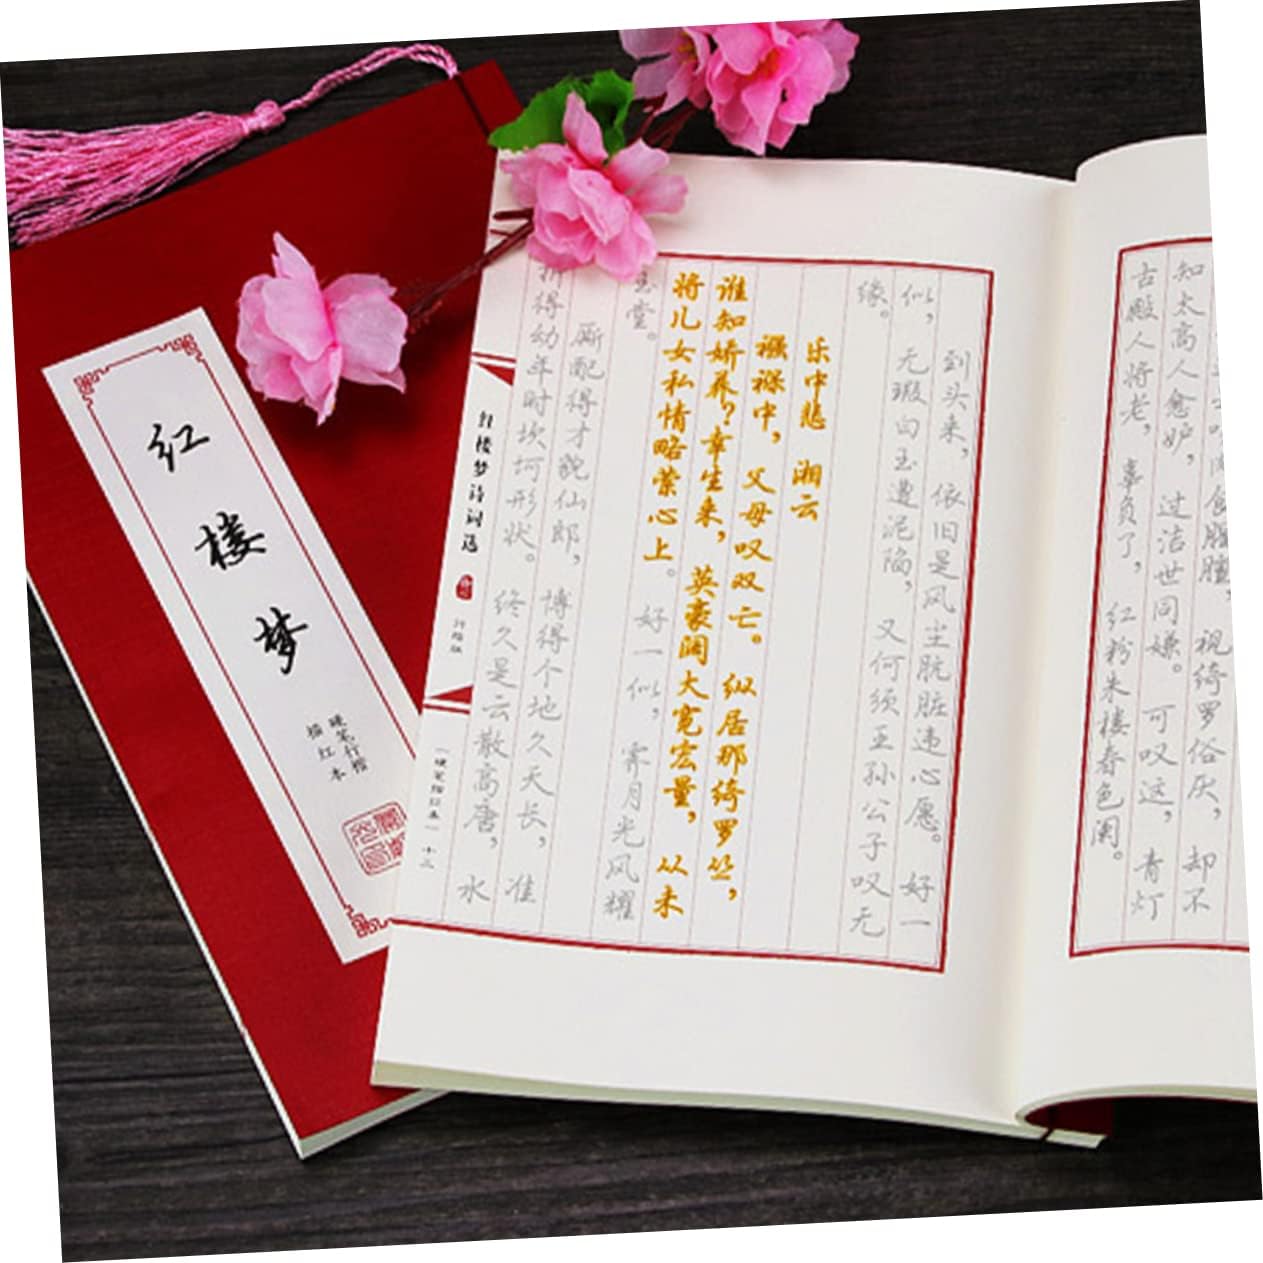 红楼梦
硬笔行楷
描红本
肉食腥膻，视绮罗俗厌，却不
知太高人愈妒，过洁世同嫌。可叹这，青灯
古殿人将老，辜负了，红粉朱楼春色阑。
到头来，依旧是风尘肮脏违心愿。好一
似，无瑕白玉遭泥陷，又何须王孙公子叹无
缘。
乐中悲 湘云
襁褓中，父母叹双亡。纵居那绮罗丛，
谁知娇养？幸生来，英豪阔大宽宏量，从未
将儿女私情略萦心上。好一似，霁月光风耀
玉堂。
厮配得才貌仙郎，博得个地久天长，准
折得幼年时坎坷形状。终久是云散高唐，水
红楼梦诗词选
行楷版
（硬笔描红本）